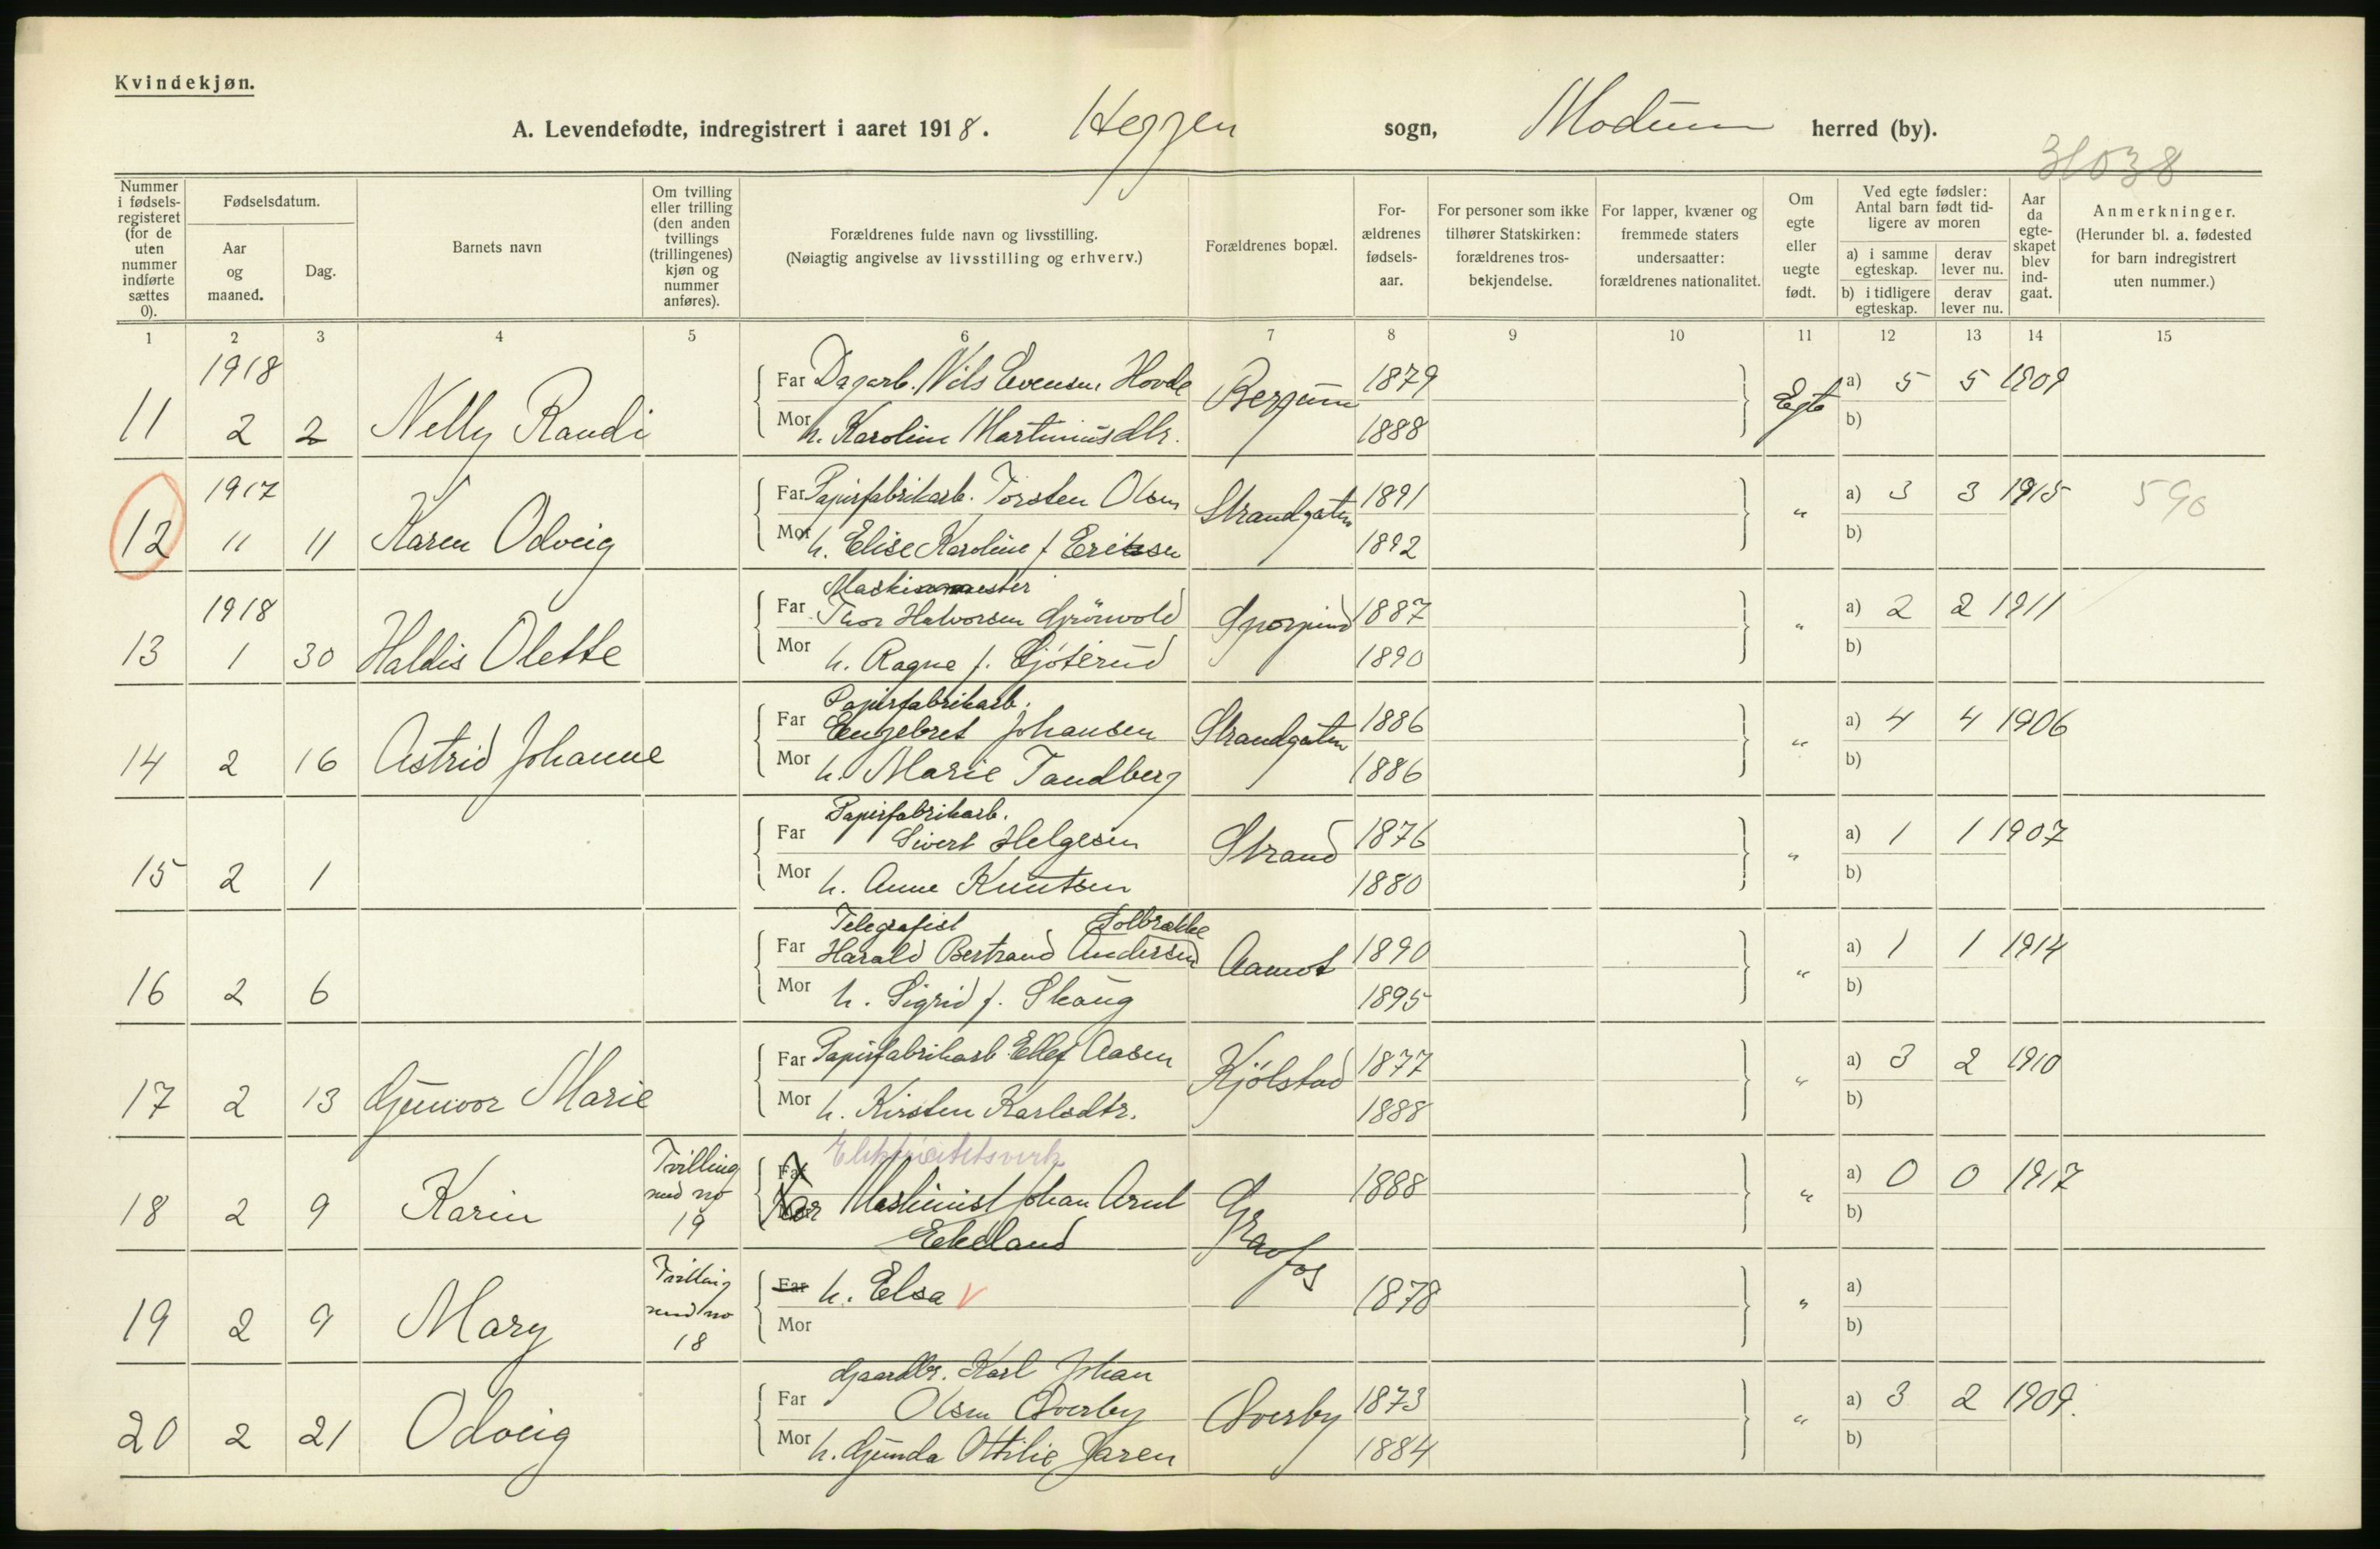 Kvindekjøn.
A. Levendefødte, indregistrert i aaret 1918. Heggen sogn, Modum herred (by).
31038
Nummer i fødsels-registeret (for de uten nummer indførte sættes 0).
Fødselsdatum.
Aar og maaned.
Dag.
Barnets navn
Om tvilling eller trilling (den anden tvillings (trillingenes) kjøn og nummer anføres).
Forældrenes fulde navn og livsstilling.
(Nøiagtig angivelse av livsstilling og erhverv.)
Forældrenes bopæl.
For-ældrenes fødsels-aar.
For personer som ikke tilhører Statskirken: forældrenes tros-bekjendelse.
For lapper, kvæner og fremmede staters undersaatter: forældrenes nationalitet.
Om egte eller uegte født.
Ved egte fødsler: Antal barn født tid-ligere av moren
a) i samme egteskap.
derav lever nu.
b) i tidligere egteskap.
derav lever nu.
Aar da egte-skapet blev ind-gaat.
Anmerkninger.
(Herunder bl. a. fødested for barn indregistrert uten nummer.)
1 2 3 4 5 6 7 8 9 10 11 12 13 14 15
1918
Far Dagarb. Nils Evensen Hovde Bergum 1879 Egte a) 5 5 1909
11 2 2 Nelly Randi Mor h. Karoline Martinusdtr. 1888 b)
1917
Far Papirfabrikarb. Torsten Olsen Strandgaten 1891 " a) 3 3 1915 590
12 11 11 Karen Odveig Mor h. Elise Karoline f Eriksen 1892 b)
1918
Maskinmester
Far Thor Halvorsen Grönvold 1887 " a) 2 2 1911
13 1 30 Haldis Olette Mor h. Ragne f. Sjøterud 1890 b)
Papirfabrikarb.
Far Engebret Johansen Strandgaten 1886 " a) 4 4 1906
14 2 16 Astrid Johanne Mor h. Marie Tandberg 1886 b)
Papirfabrikarb.
Far Sivert Helgesen Strand 1876 " a) 1 1 1907
15 2 1 Mor h. Anne Knutsen 1880 b)
Telegrafist Solbrække
Far Harald Bertrand Andersen Aamot 1890 " a) 1 1 1914
16 2 6 Mor h. Sigrid f. Skaug 1895 b)
Far Papirfabrikarb Ellef Aasen Kjølstad 1877 " a) 3 2 1910
17 2 13 Gunvor Marie Mor h. Kirsten Karlsdtr. 1888 b)
Elektricitetsverk
Tvilling med no 19
Far Maskinist Johan Arnt Gravfos 1888 " a) 0 0 1917
18 2 9 Karin Ekeland b)
Tvilling med no 18
Far h. Elsa 1878 " a)
19 2 9 Mary Mor b)
Gaardbr. Karl Johan
Far Olsen Overby Overby 1873 " a) 3 2 1909.
20 2 21 Odveig Mor h. Gunda Ottilie Jaren 1884 b)